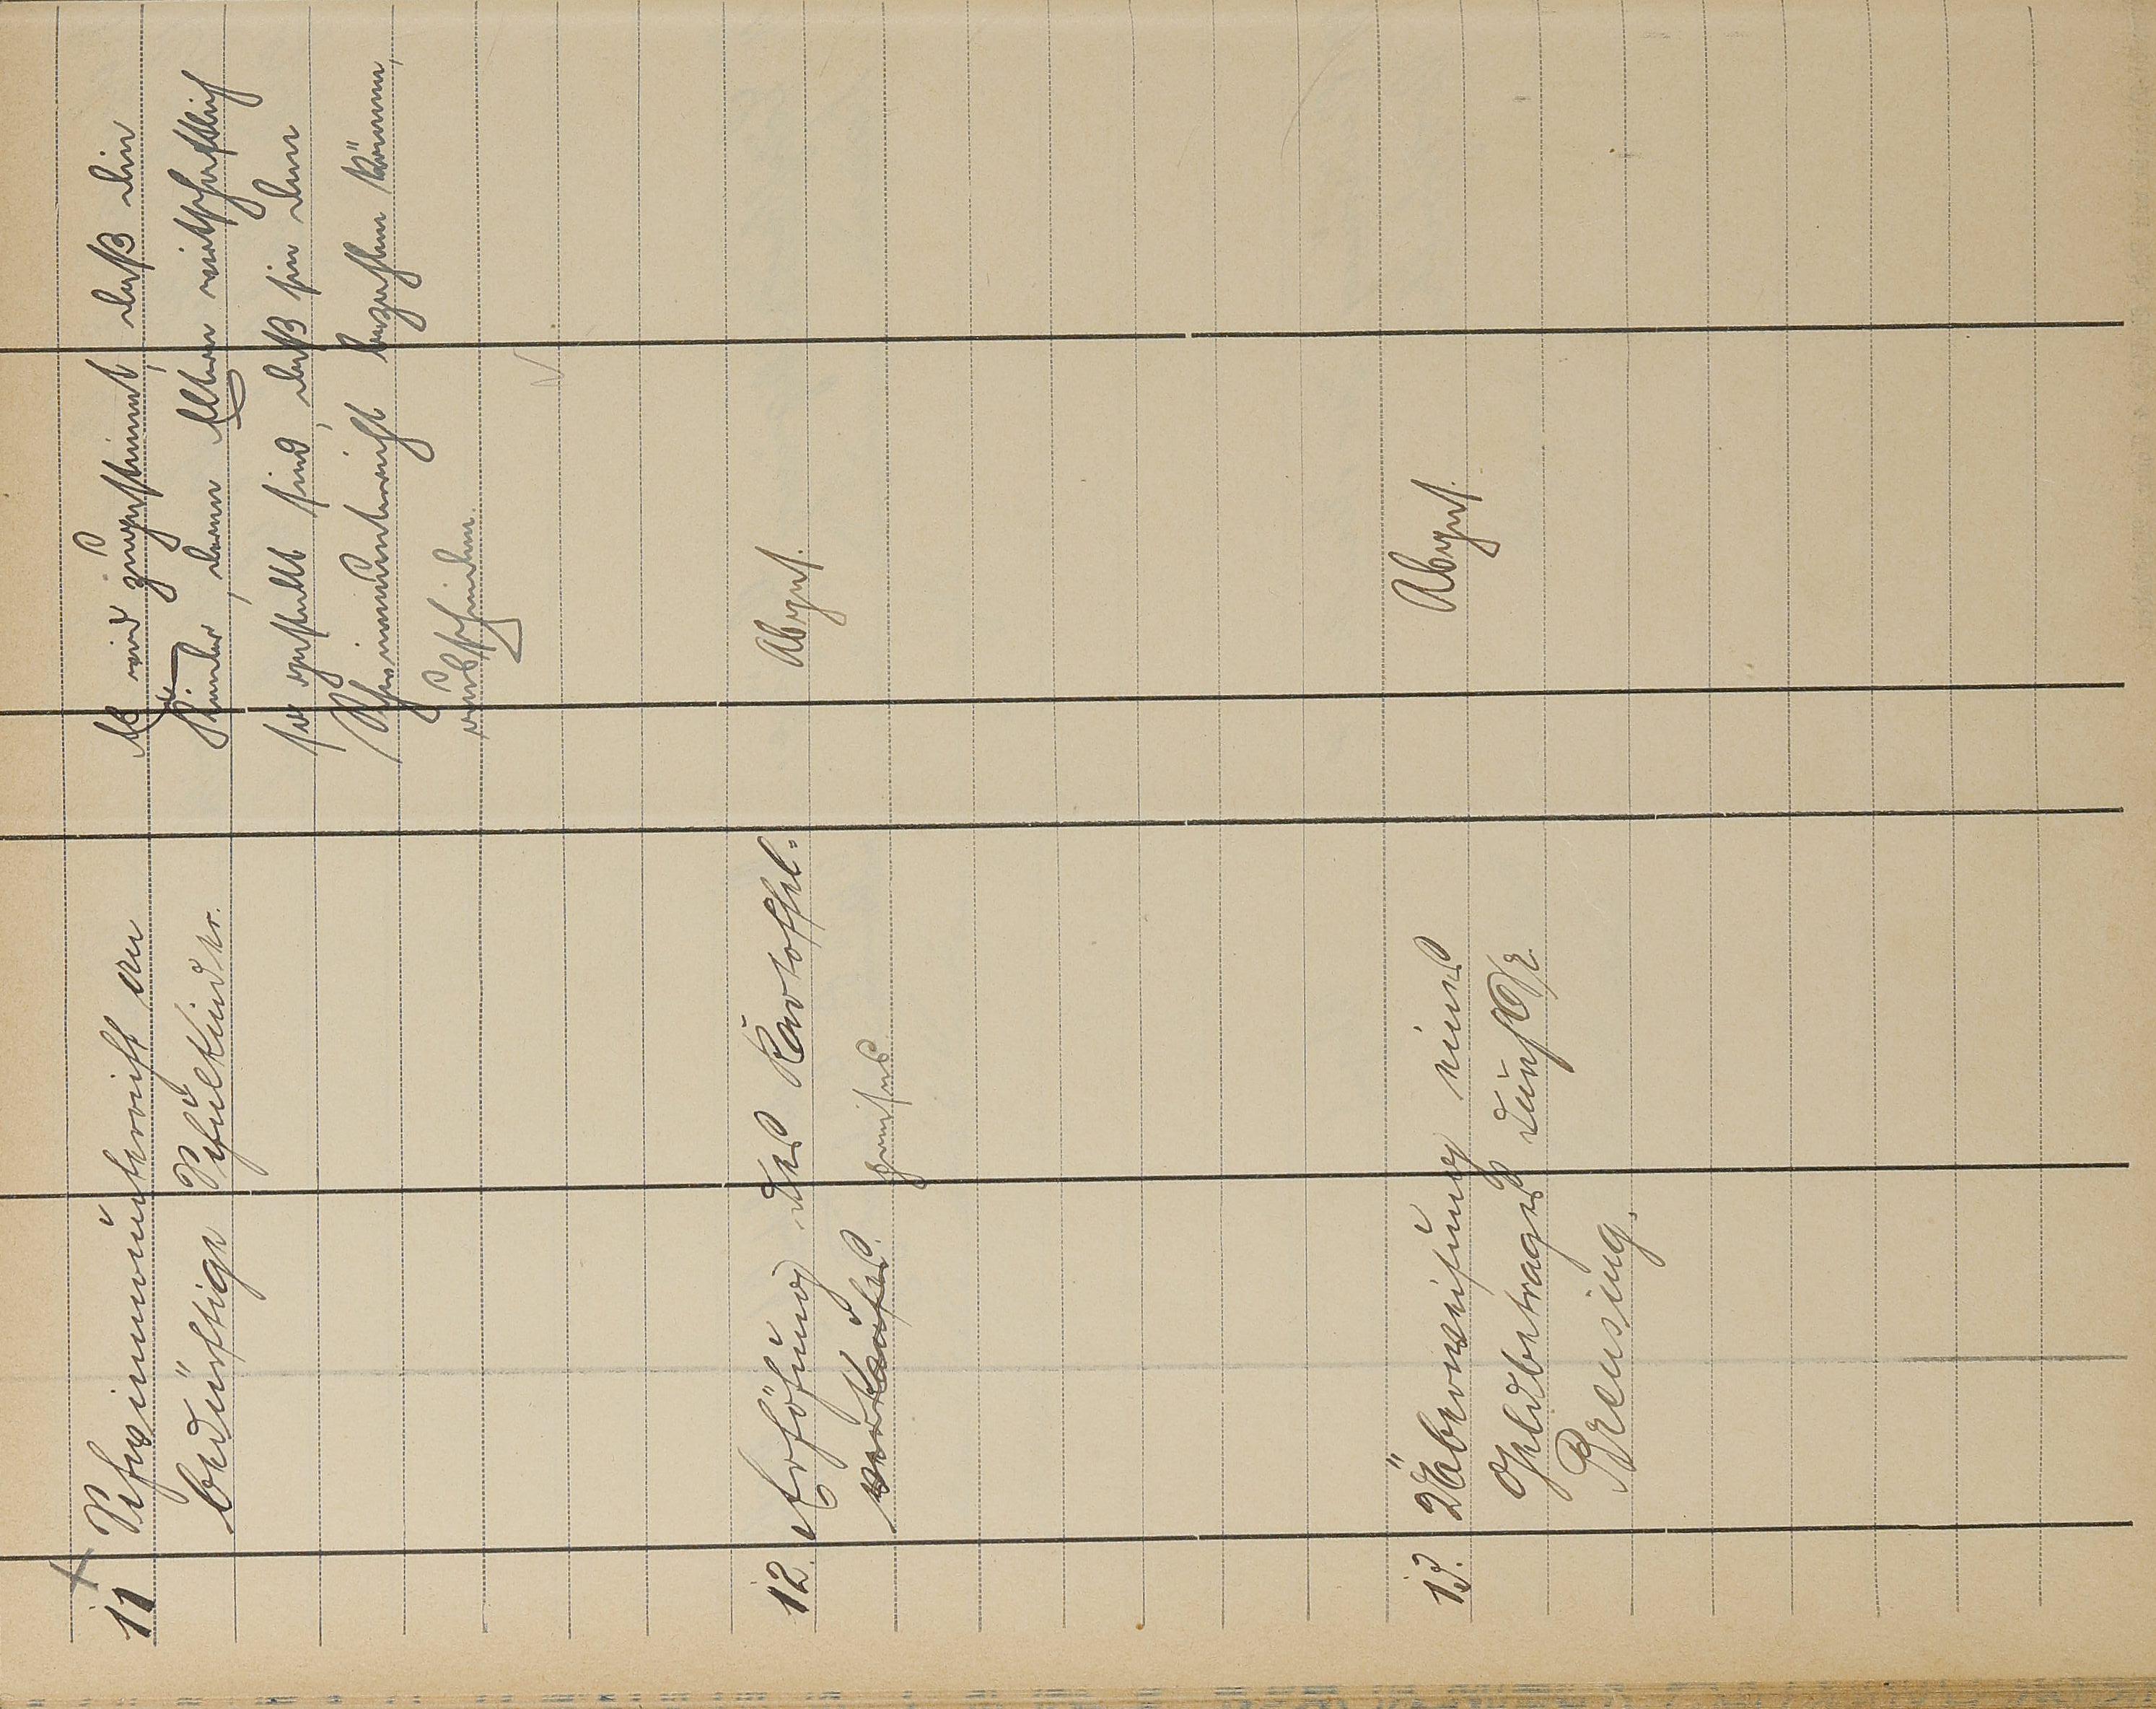 11 Schwimmunterricht an
bedürftige Schulkinder.
Es wird zugestimmt, daß die
Kinder, deren Eltern wirtschaftlich
so gestellt sind, daß sie den
Schwimmunterricht bezahlen können,
ausscheiden.
12. Erhöhung des Kartoffel-
verkaufes.
preises
Abges.
13. Überweisung eines
Geldbetrages durch
Preusing.
Abges.